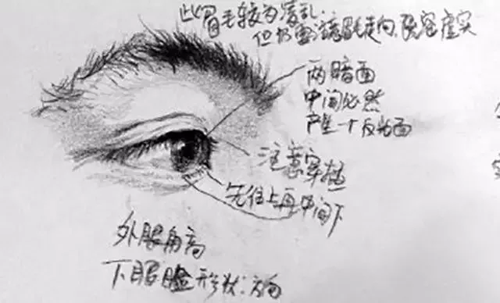 此眉毛较为凌乱.
但仍要注意眉毛走向,
两暗面
中间必然
产生一个反光面
注意穿插
先往上再中间下
外眼角高
下眼睑形状.方向